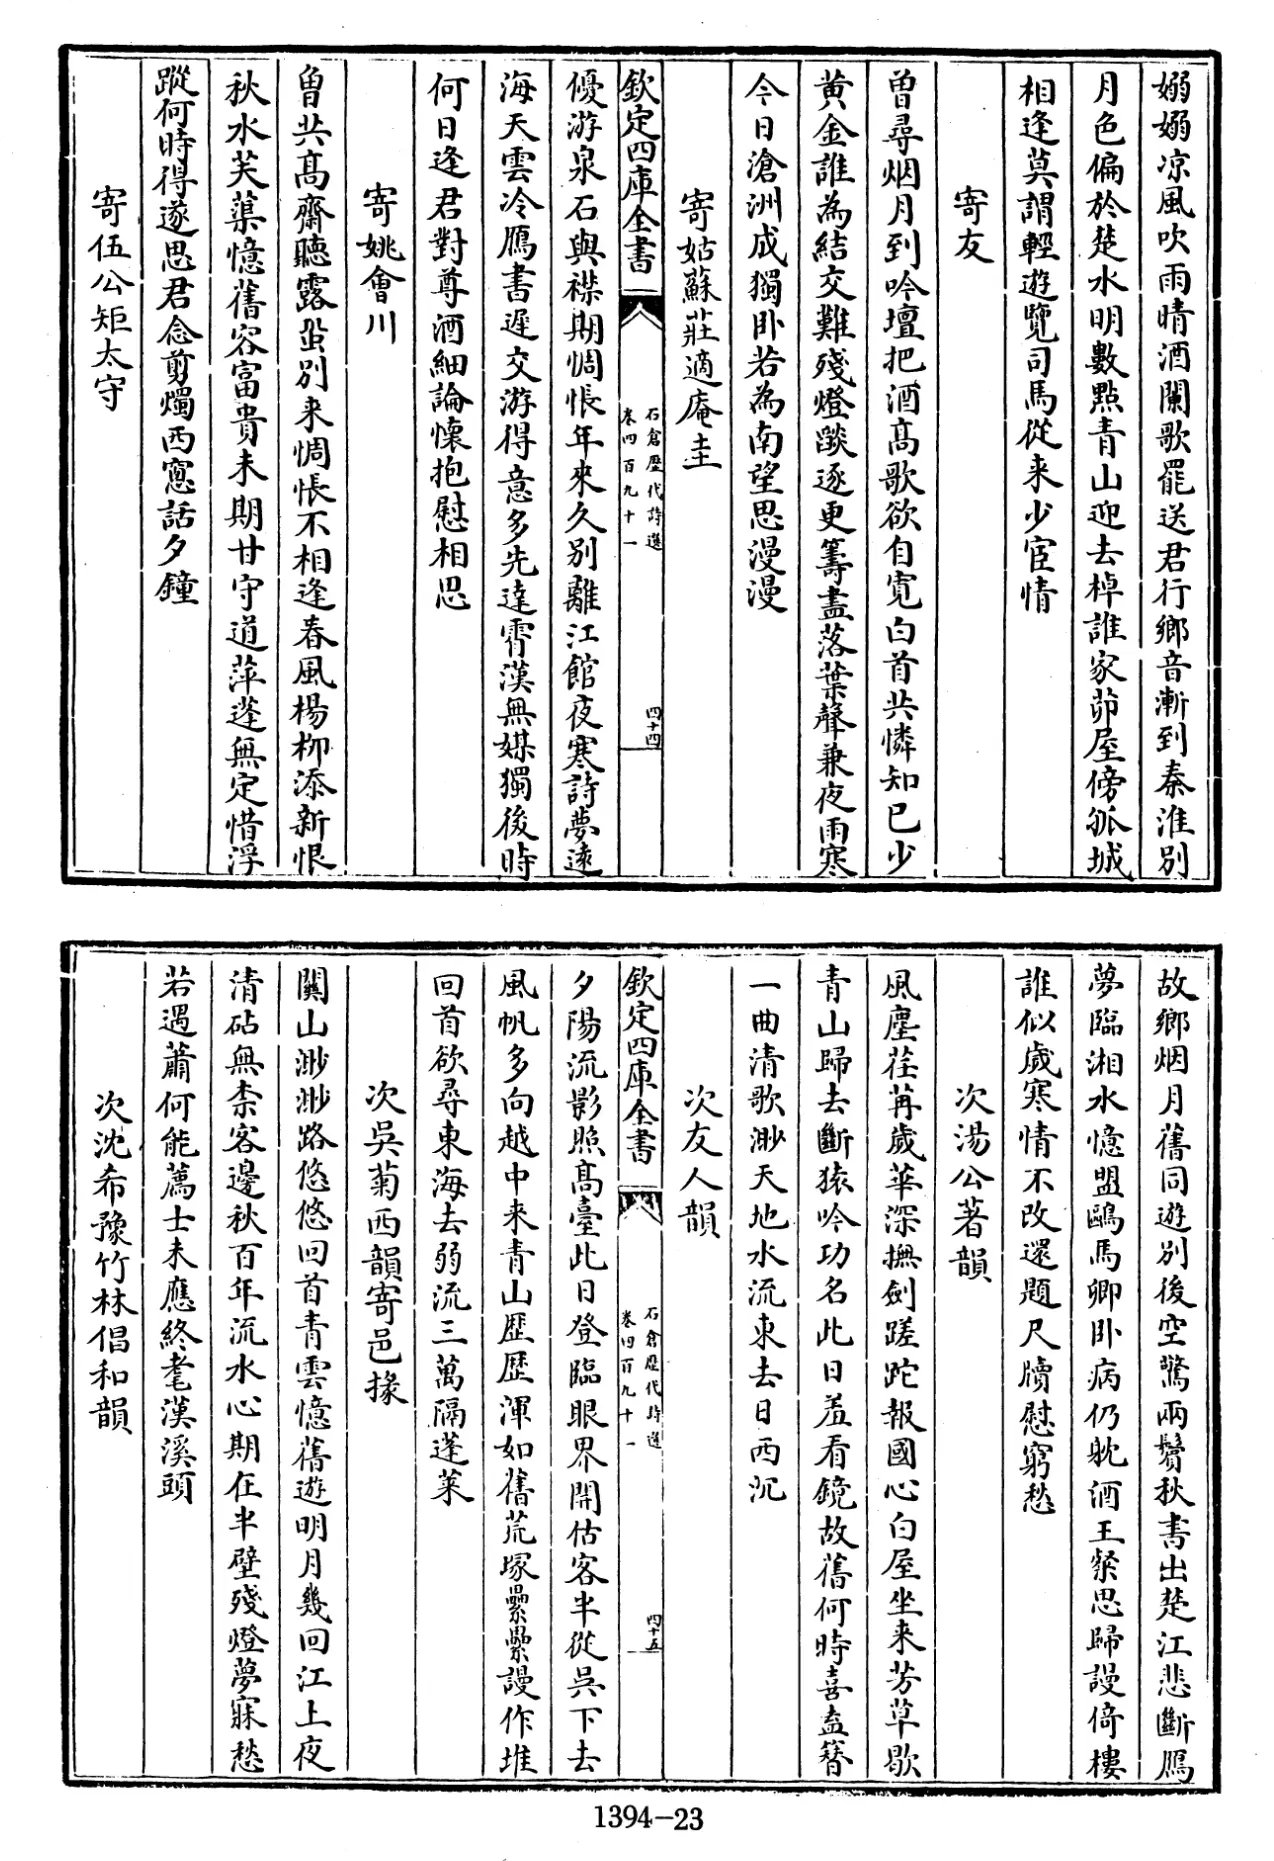 嫋嫋凉風吹雨晴酒闌歌罷送君行鄉音漸到秦淮别
月色偏於楚水明數點青山迎去棹誰家茆屋傍孤城
相逢莫謂輕遊覽司馬從来少宦情
寄友
曽尋烟月到吟壇把酒髙歌欲自寛白首共憐知已少
黄金誰為結交難殘燈燄逐更籌盡落葉聲兼夜雨寒
今日滄洲成獨卧若為南望思漫漫
寄姑蘇莊適庵圭
欽定四庫全書
石倉歷代詩選
卷四百九十一
四十四
優游泉石與襟期惆悵年來久别離江館夜寒詩夢遠
海天雲冷鴈書遲交游得意多先達霄漢無媒獨後時
何日逢君對尊酒細論懷抱慰相思
寄姚會川
曽共髙齋聽露蛩别来惆悵不相逢春風楊柳添新恨
秋水芙蕖憶舊容富貴未期甘守道萍蓬無定惜浮
蹤何時得遂思君念剪燭西窻話夕鐘
寄伍公矩太守
故鄉烟月舊同遊别後空驚兩鬢秋書出楚江悲斷鴈
夢臨湘水憶盟鷗馬卿卧病仍躭酒王粲思歸謾倚樓
誰似歲寒情不改還題尺牘慰窮愁
次湯公著韻
風塵荏苒歲華深撫劍蹉跎報國心白屋坐来芳草歇
青山歸去斷猿吟功名此日羞看鏡故舊何時喜盍簪
一曲清歌渺天地水流東去日西沉
次友人韻
欽定四庫全書
石倉歷代詩選
卷四百九十一
四十五
夕陽流影照髙臺此日登臨眼界開估客半從吳下去
風帆多向越中来青山歷歷渾如舊荒塚纍纍謾作堆
回首欲尋東海去弱流三萬隔蓬莱
次吳菊西韻寄邑掾
關山渺渺路悠悠回首青雲憶舊遊明月幾回江上夜
清砧無柰客邊秋百年流水心期在半壁殘燈夢寐愁
若遇蕭何能薦士未應終耄漢溪頭
次沈希豫竹林倡和韻
1394—23